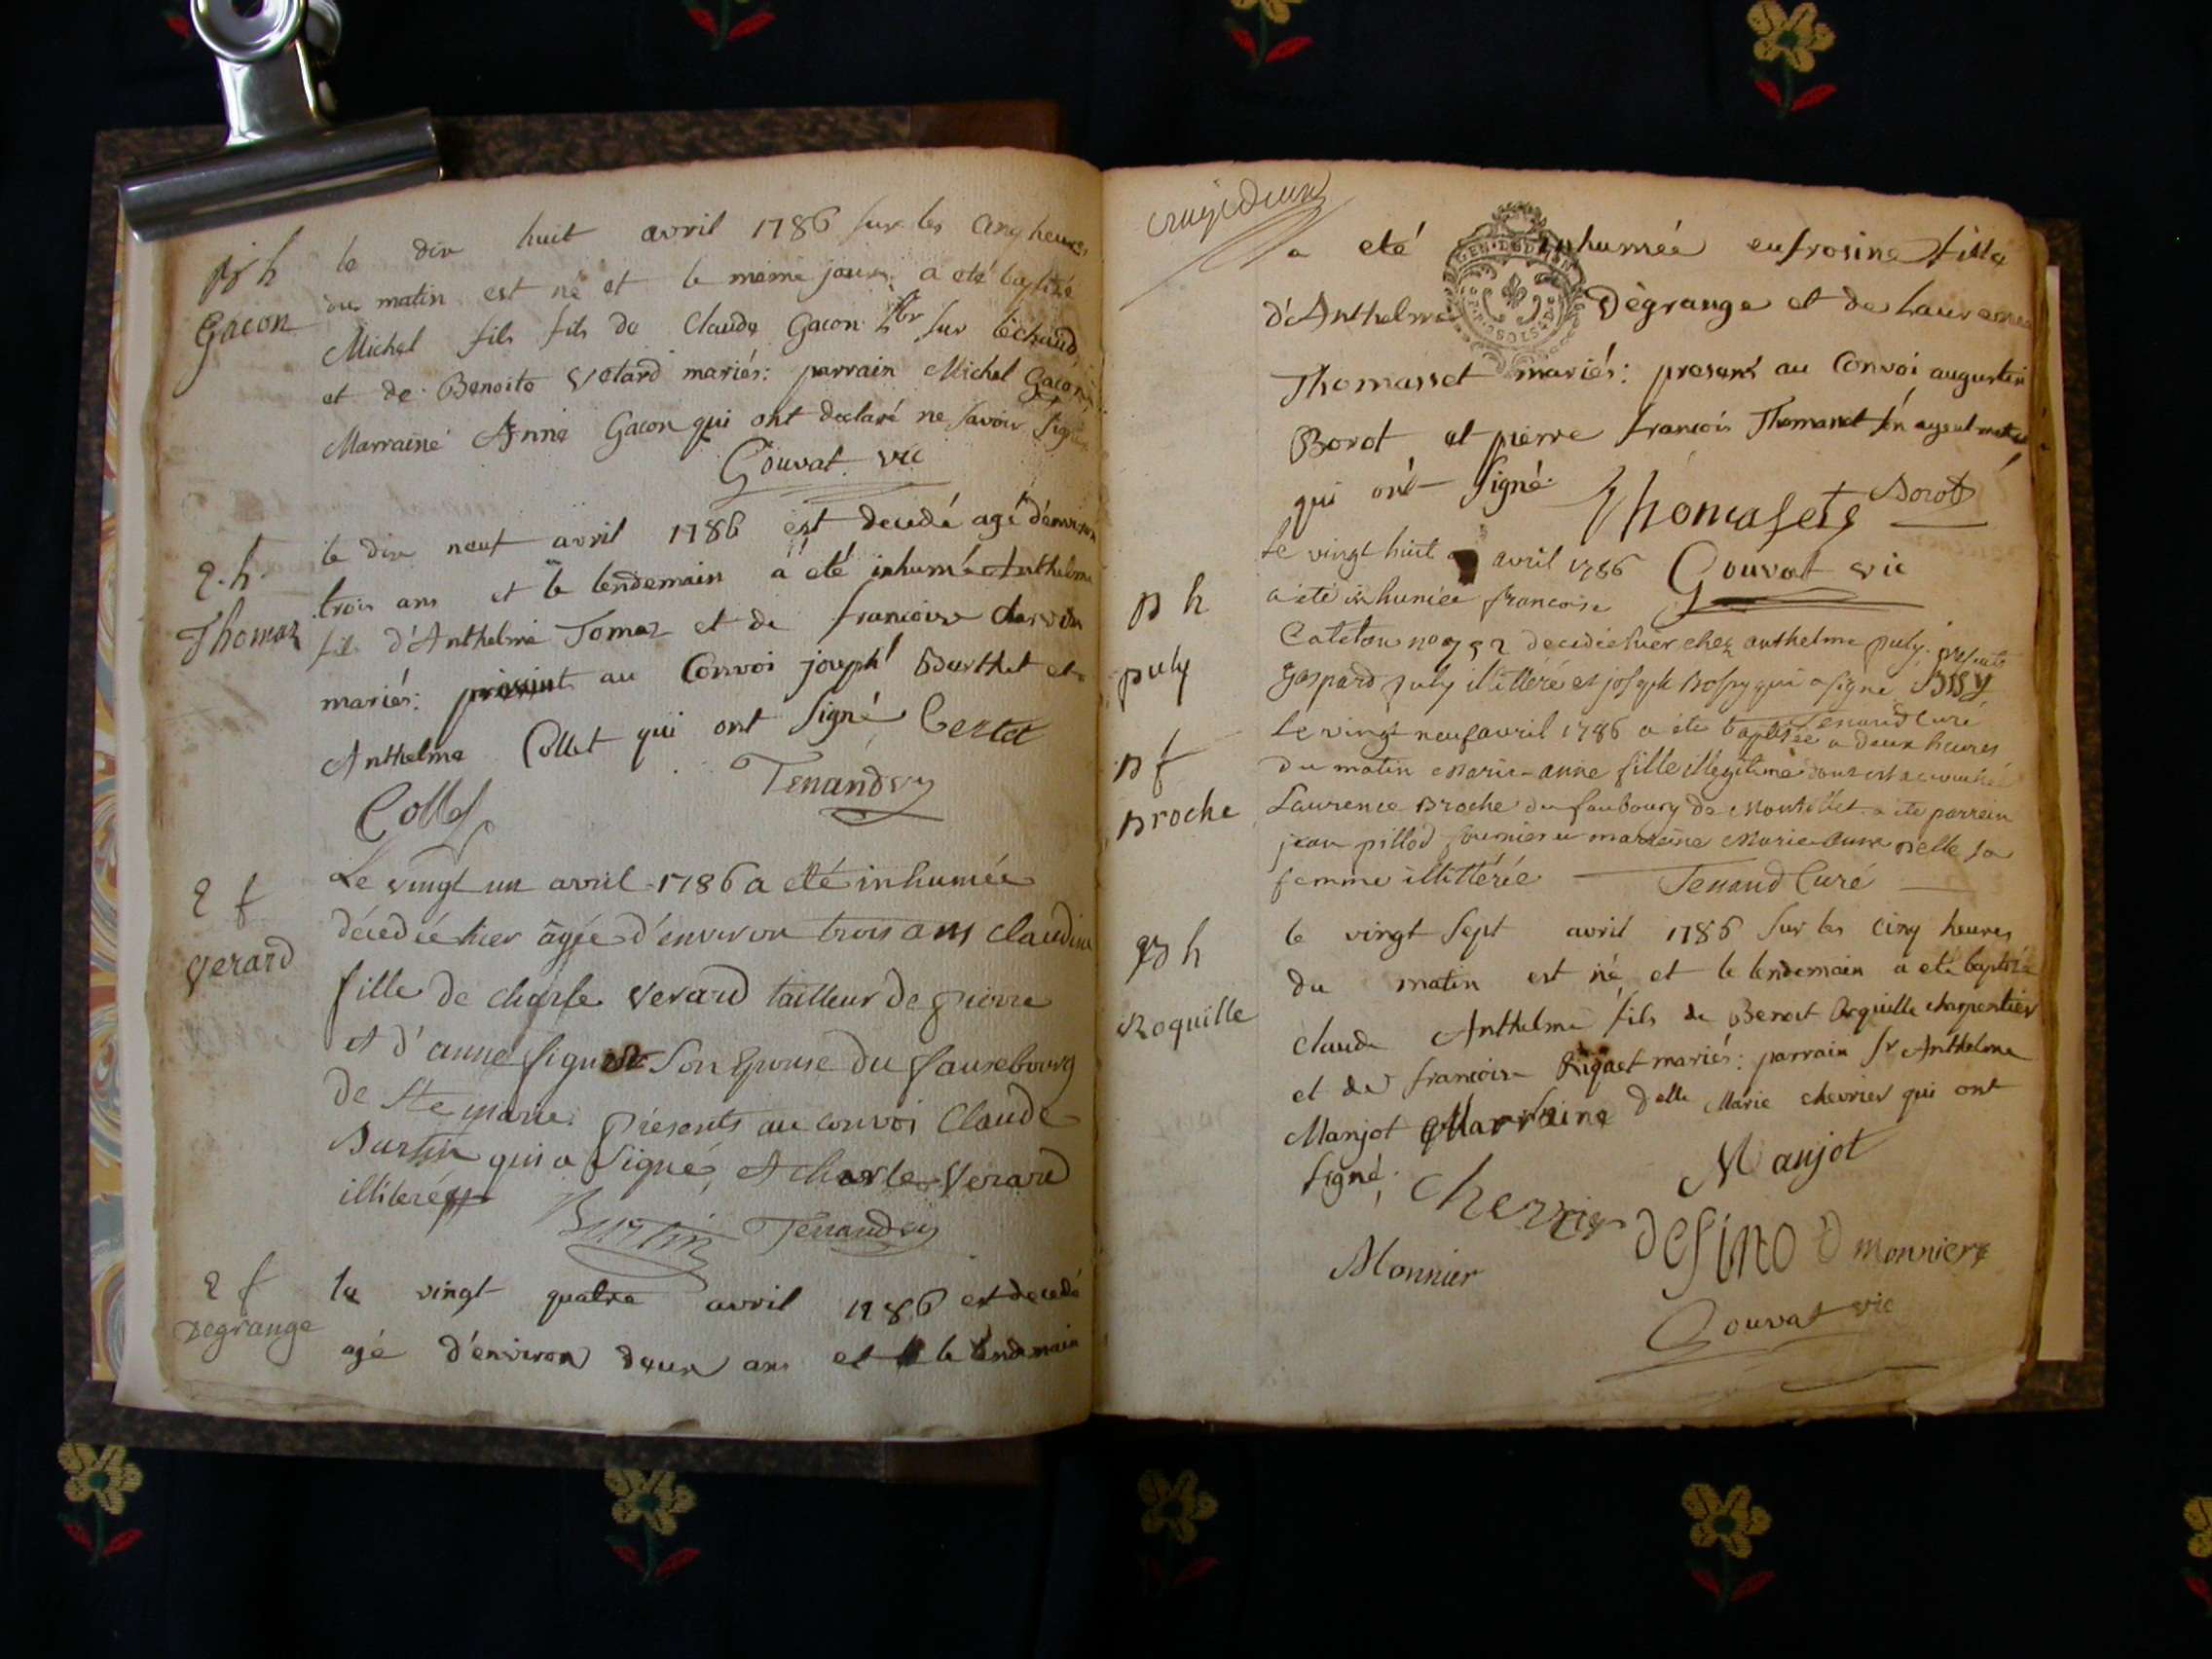 B h
Gacon
le dix huit avril 1786 sur les cinq heures
du matin est né et le meme jour a eté baptizé
Michel fils fils de Claude Gacon
et de Benoite Vetard mariés: parrain Michel Gacon
Marraine Anne Gacon qui ont declaré ne savoir signer
Gouvat vic
E. h.
Thomaz
le dix neuf avril 1786 est decedé agé d'environ
trois ans et le lendemain a eté inhumé Anthelme
fils d'Anthelme Tomaz et de francoise
mariés: présents au Convoi joseph Burthet et
Anthelme Collet qui ont signé Bertet
Collet Tenand
E f
Verard
Le vingt un avril 1786 a eté inhumée
décédée hier âgée d'environ trois ans claudine
fille de charle Verard tailleur de pierre
et d'anne son Epouse du fauxbourg
de Ste marie. présents au convoi Claude
Burtin qui a signé, et charle Verard
illiteré
Burtin Tenand
E f
Degrange
le vingt quatre avril 1786 est decedé
agé d'environ deux ans et le lendemain
a eté inhumée eufrosine fille
GEN. DE DIJON
d'Anthelme Dègrange et de Laurence
Thomasset mariés: presens au Convoi augustin
Borot et pierre francois Thomasset son ayeul
qui ont signé. Thomasset Borot
Gouvat vic
B h
puly
Le vingt huit avril 1786
a été inhumée francoise
Catelon decedée hier chez anthelme puly. présents
Gaspard puly illitéré et joseph Bossy qui a signé Bossy
Tenand Curé
B f
Broche
Le vingt neuf avril 1786 a été baptisée a deux heures
du matin Marie-anne fille illegitime dont est accouchée
Laurence Broche du faubourg de a été parrein
jean pillod fournier et marreine Marie anne sa
femme illittérée Tenand Curé
B h
Roquille
le vingt sept avril 1786 sur les cinq heures
du matin est né et le lendemain a eté baptizé
claude Anthelme fils de Benoit Roquille charpentier
et de francoise Riquet mariés: parrain Sr Anthelme
Manjot Marraine Delle Marie chevrier qui ont
signé; Manjot
Chevrier
Monnier Desino Monnier
Gouvat vic